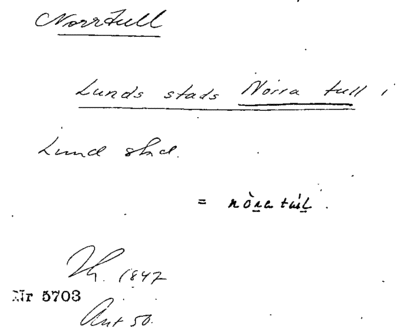 Norrtull
Lunds stads Norra tull i
Lund stad.
= nòra túl.
Th. 1847
Nr 5703
Ant 50.